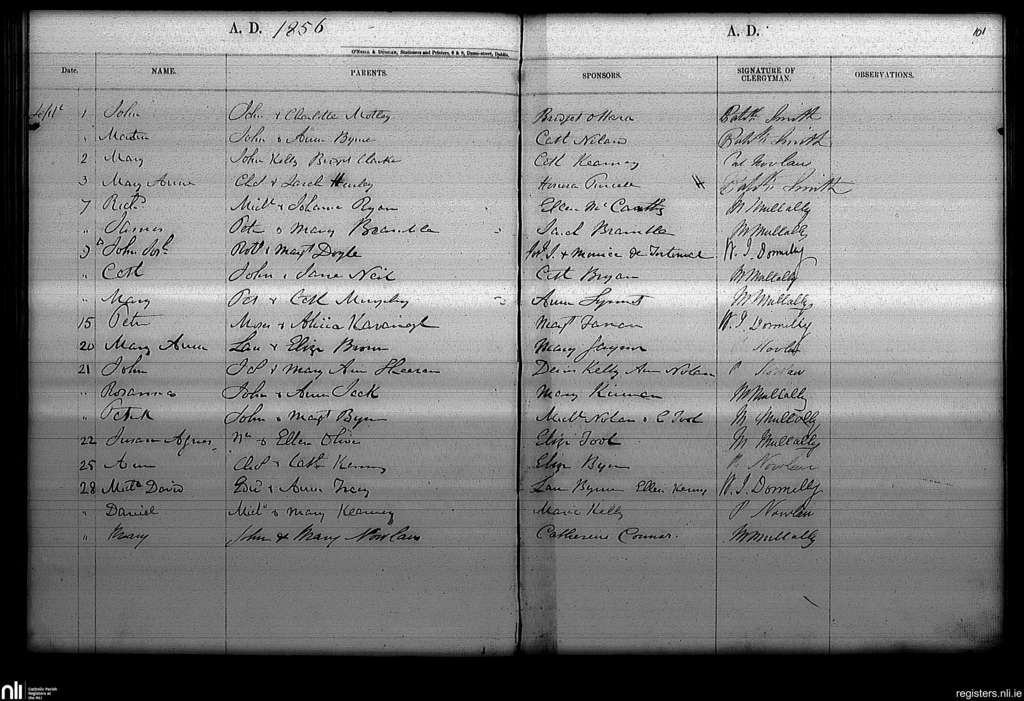 A. D. 1856 A. D. 101
O'Neill & Duggan, Stationers and Printers, 8 & 9, Dame-street, Dublin.
Date. NAME. PARENTS. SPONSORS. SIGNATURE OF CLERGYMAN. OBSERVATIONS.
Sept 1 John John & Charlotte Motley Bridget O'Hara Smith
" Martin John & Anne Byrne Cath Nolan Smith
2 Mary John Kelly Bridget Clarke Cath Kearney Pat Nowlan
3 Mary Anne Chs & Sarah Henley Honora Smith
7 Richd Michl & Johanna Ryan Ellen McCarthy M Mullally
" James Peter & Mary Bramble Sarah Bramble M Mullally
9 John Josh Robt & Margt Doyle W. J. Donnelly
" Cath John & Jane Neil Cath Bryan M Mullally
" Mary Pat & Cath Murphy Anne M Mullally
15 Peter Moses & Alicia Kavanagh Margt W. J. Donnelly
20 Mary Anne Lau & Eliza Brown Mary Nowlan
21 John & Mary Ann Sheeran Denis Kelly Ann Nolan P Nowlan
" Rosanna John & Anne Jack Mary M Mullally
" Patrk John & Margt Byrne Michl Nolan & C Tool M Mullally
22 Susan Agnes Wm & Ellen Oliver Eliza Tool M Mullally
25 Anne Chs & Cath Kenny Eliza Byrne P Nowlan
28 Michl David Edwd & Anne Tracy Lau Byrne Ellen Kenny W. J. Donnelly
" Daniel Michl & Mary Kearney Maria Kelly P Nowlan
" Mary John & Mary Nowlan Catherine Connor. M Mullally
nli Catholic Parish Registers at the NLI
registers.nli.ie